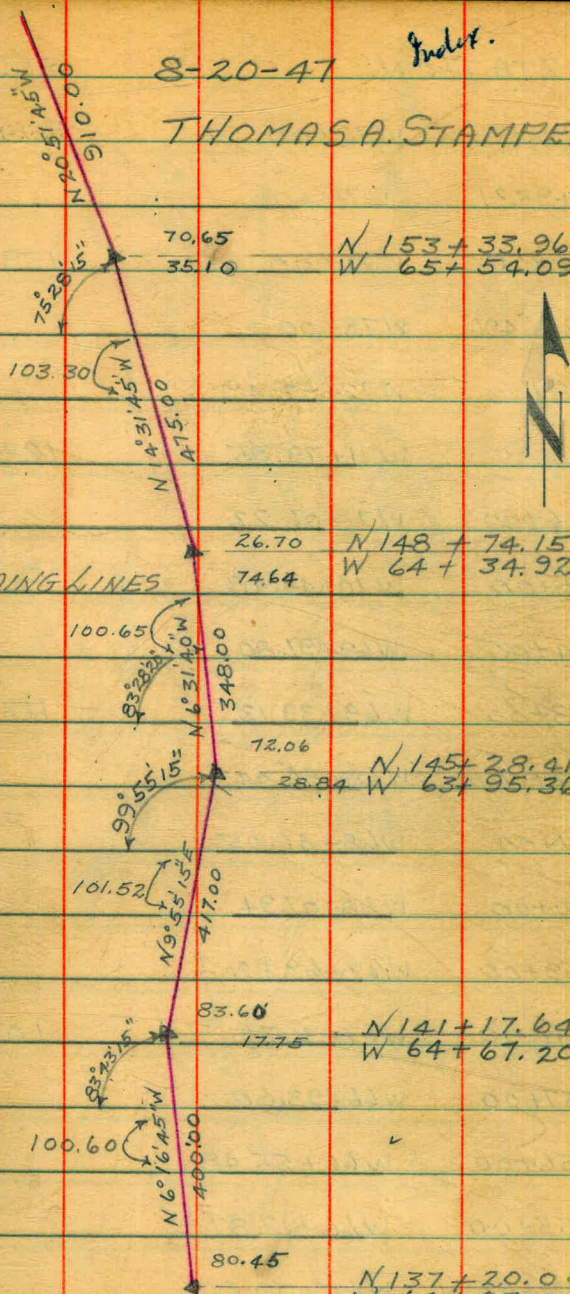 Index.
8-20-47
THOMAS A. STAMPE
N 20°51'45"W
910.00
70.65
35.10
N 153+33.96
W 65+54.09
75°28'15"
103.30
N 14°31'45"W
475.00
26.70
74.64
N 148+74.15
W 64+34.92
DING LINES
100.65
83°28'20"
N 6°31'40"W
348.00
72.06
28.84
N 145+28.41
W 63+95.36
99°55'15"
101.52
N 9°55'15"E
417.00
83.60
17.75
N 141+17.64
W 64+67.20
83°43'15"
100.60
N 6°16'45"W
400.00
80.45
N 137+20.0